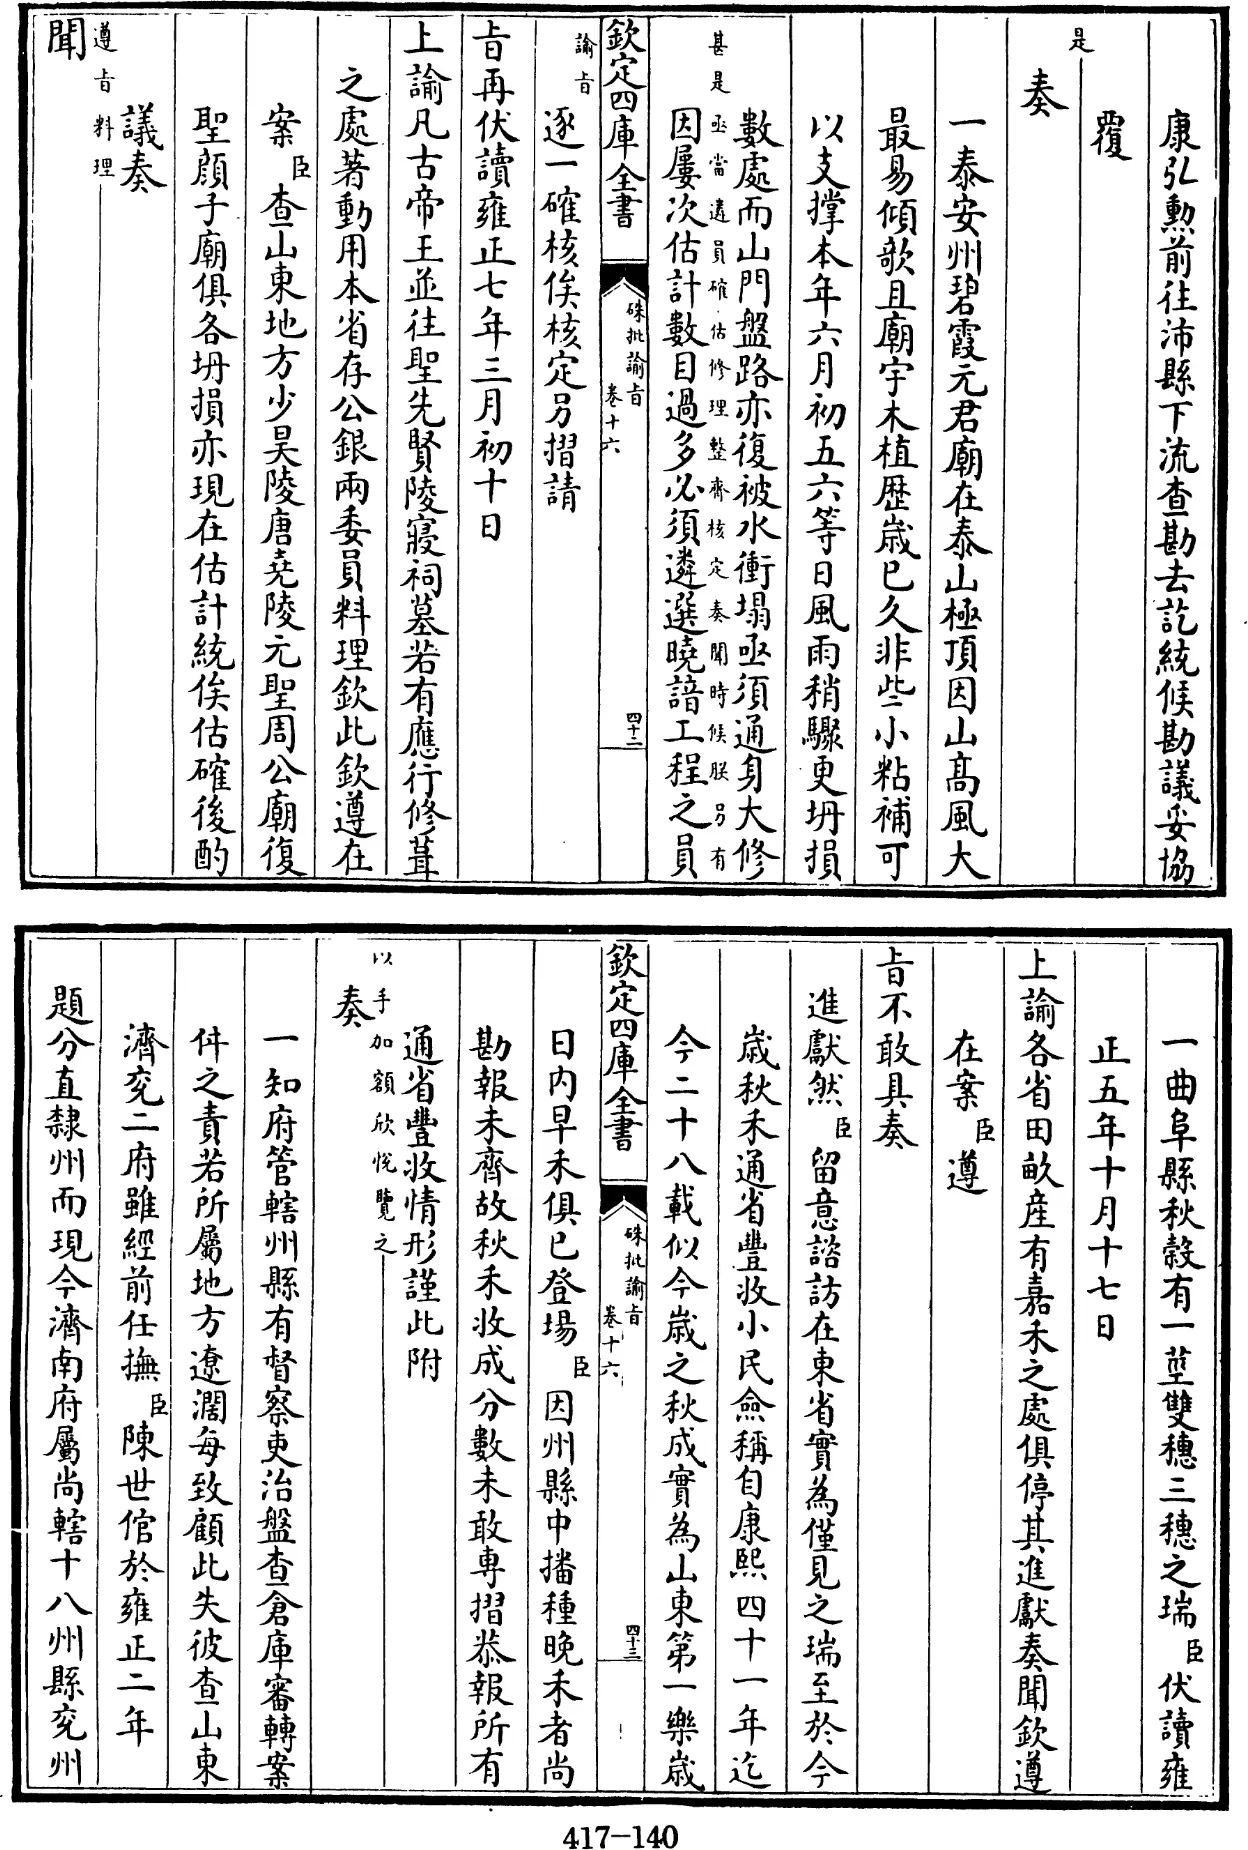 康弘勲前往沛縣下流查勘去訖統候勘議妥協
覆
是
奏
一泰安州碧霞元君廟在泰山極頂因山髙風大
最易傾欹且廟宇木植歴歲已久非些小粘補可
以支撑本年六月初五六等日風雨稍驟更坍損
數處而山門盤路亦復被水衝塌亟須通身大修
甚是亟當遴員確估修理整齊核定奏聞時候朕另有
因屢次估計數目過多必須遴選曉諳工程之員
欽定四庫全書
硃批諭旨
卷十六
四十二
諭旨
逐一確核俟核定另摺請
旨再伏讀雍正七年三月初十日
上諭凡古帝王並往聖先賢陵寢祠墓若有應行修葺
之處著動用本省存公銀兩委員料理欽此欽遵在
案臣查山東地方少昊陵唐堯陵元聖周公廟復
聖顔子廟俱各坍損亦現在估計統俟估確後酌
議奏
遵旨料理
聞
一曲阜縣秋榖有一莖雙穗三穗之瑞臣伏讀雍
正五年十月十七日
上諭各省田畝産有嘉禾之處俱停其進獻奏聞欽遵
在案臣遵
旨不敢具奏
進獻然臣留意諮訪在東省實為僅見之瑞至於今
歲秋禾通省豐收小民僉稱自康熙四十一年迄
今二十八載似今歲之秋成實為山東第一樂歲
欽定四庫全書
硃批諭旨
卷十六
四十三
日内早禾俱已登場臣因州縣中播種晚禾者尚
勘報未齊故秋禾收成分數未敢專摺恭報所有
通省豐收情形謹此附
以手加額欣悅覽之
奏
一知府管轄州縣有督察吏治盤查倉庫審轉案
件之責若所屬地方遼濶每致顧此失彼查山東
濟兖二府雖經前任撫臣陳世倌於雍正二年
題分直隸州而現今濟南府屬尚轄十八州縣兖州
417-140